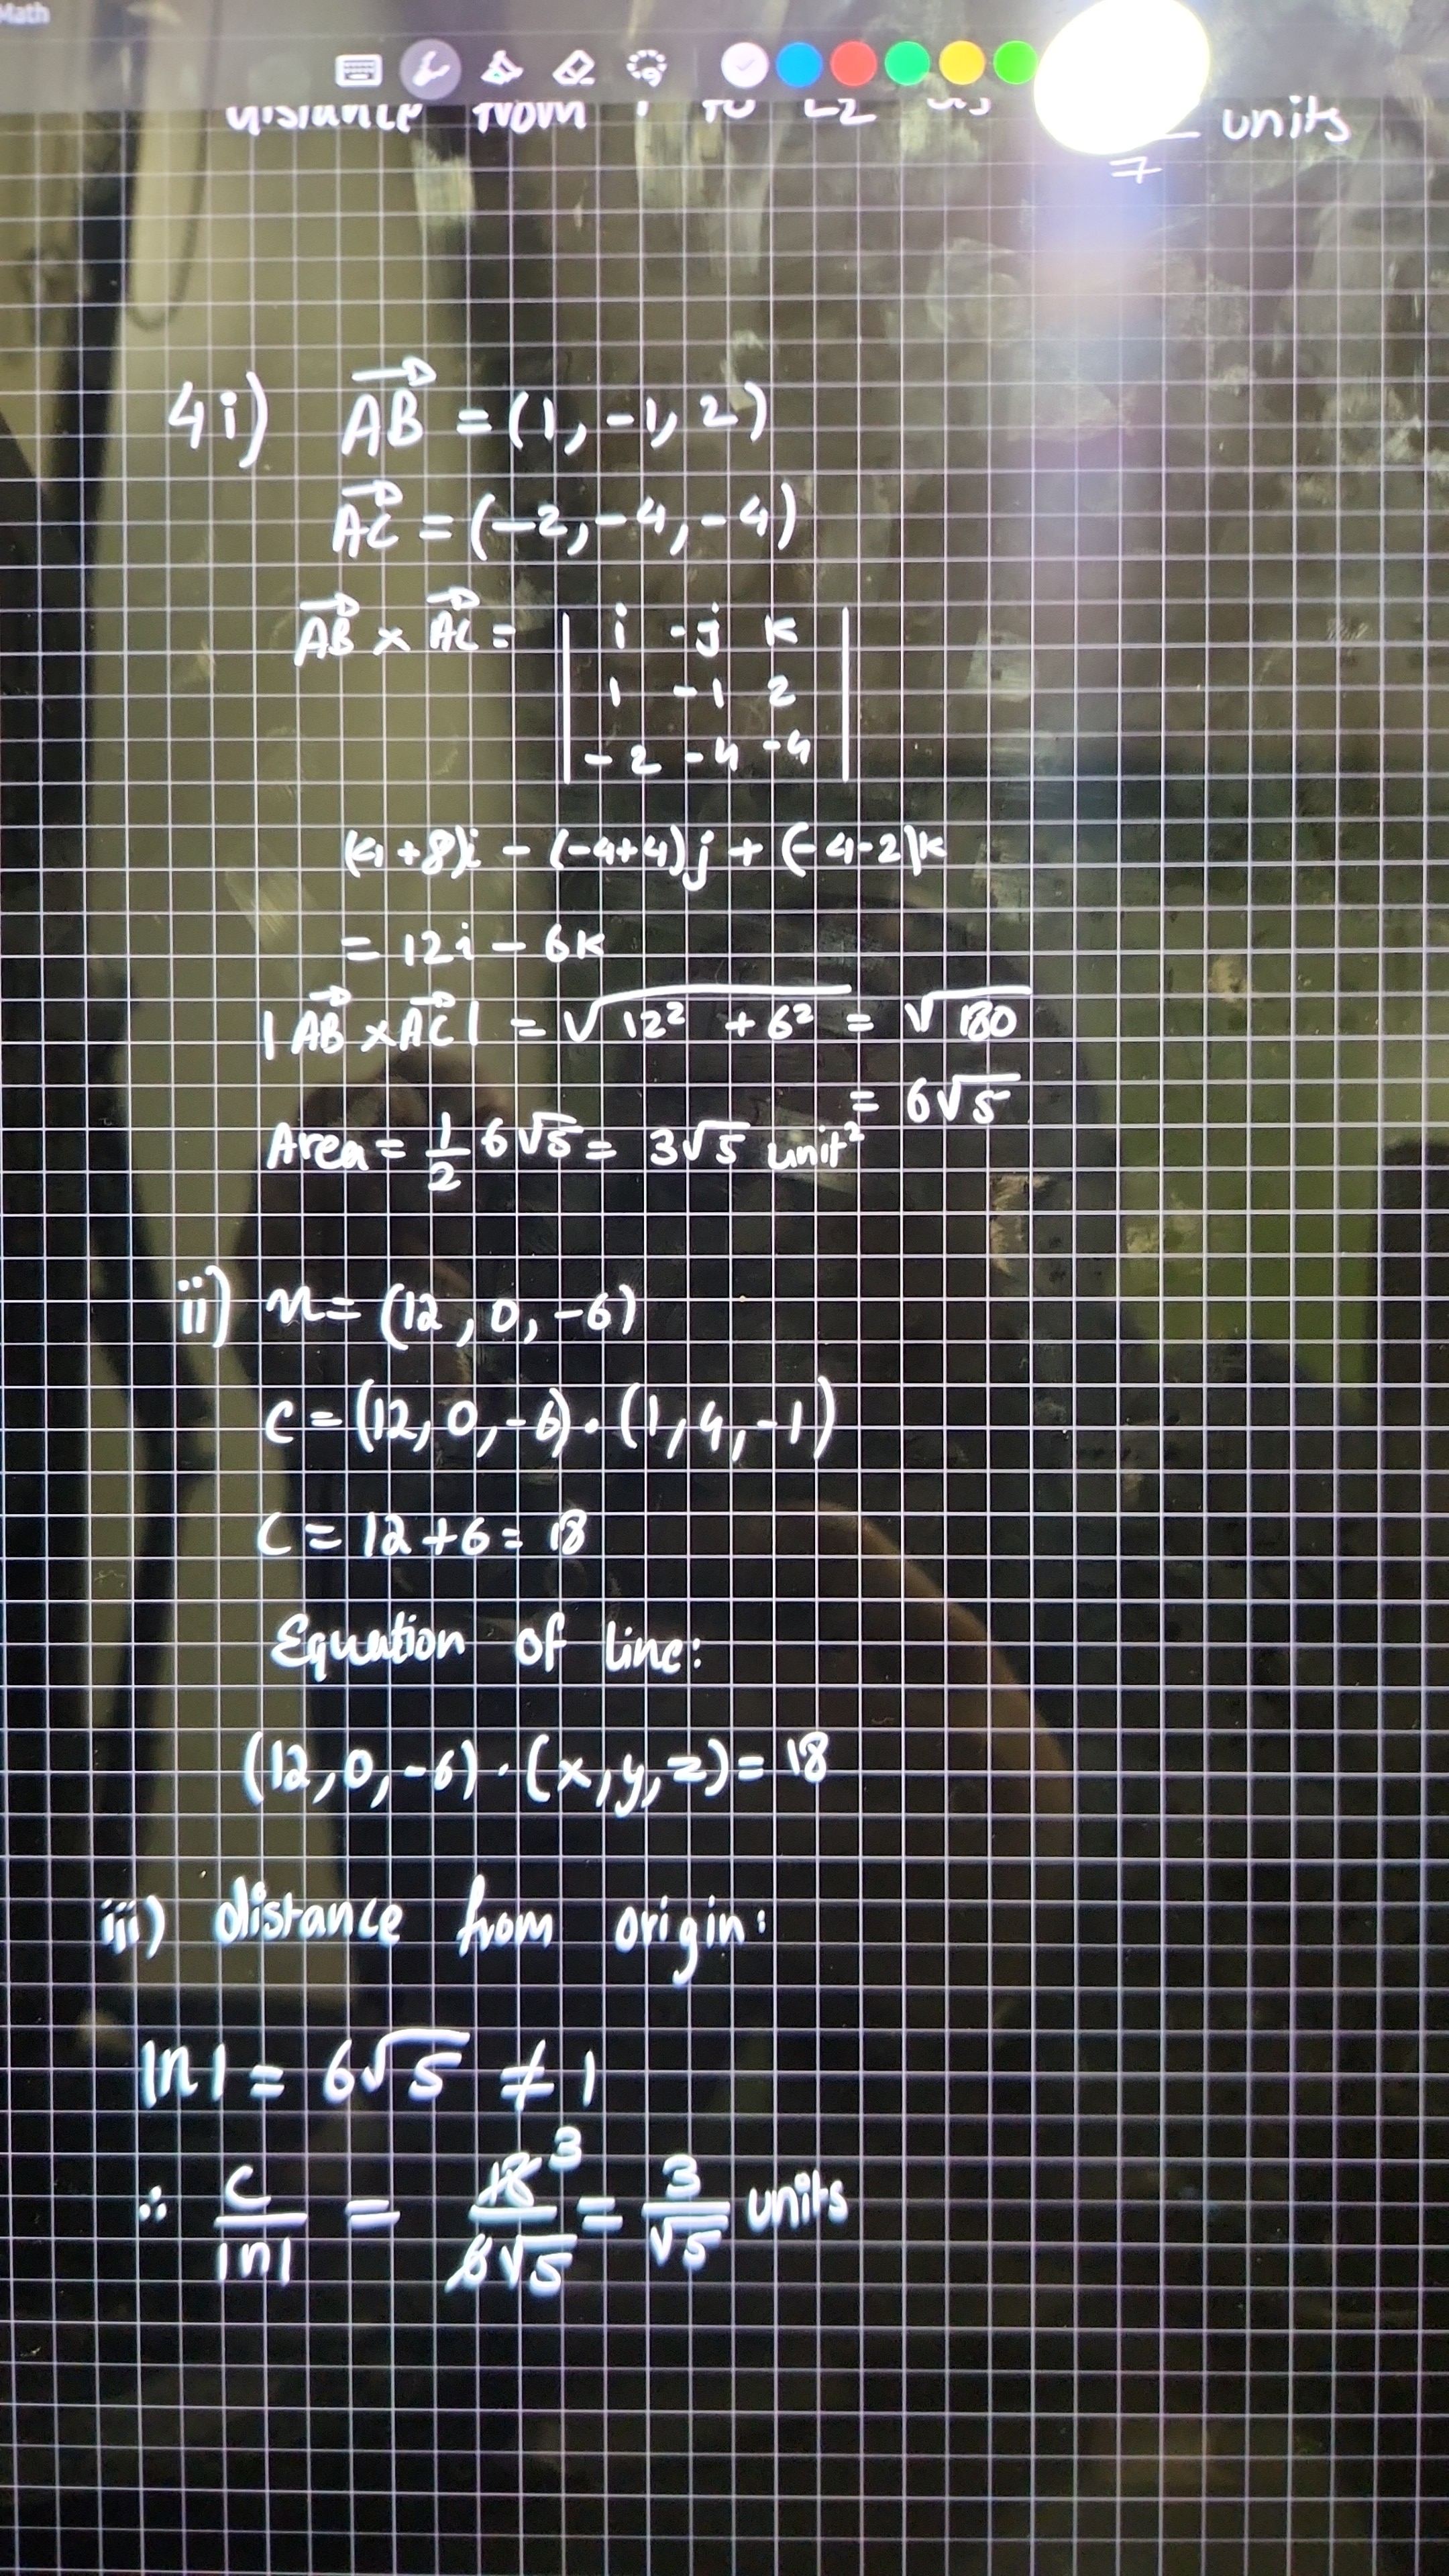 Math
distance from to L2 units
7
4i) AB = (1, -1, 2)
AC = (-2, -4, -4)
AB × AC = | i -j k |
| 1 -1 2 |
| -2 -4 -4 |
(4+8)i - (-4+4)j + (-4-2)k
= 12i - 6k
|AB × AC| = √(12² + 6²) = √180
= 6√5
Area = 1/2 6√5 = 3√5 unit²
ii) n = (12, 0, -6)
C = (12, 0, -6) · (1, 4, -1)
C = 12 + 6 = 18
Equation of line:
(12, 0, -6) · (x, y, z) = 18
iii) distance from origin:
|n| = 6√5 ≠ 1
∴ C/|n| = 18 3/6√5 = 3/√5 units